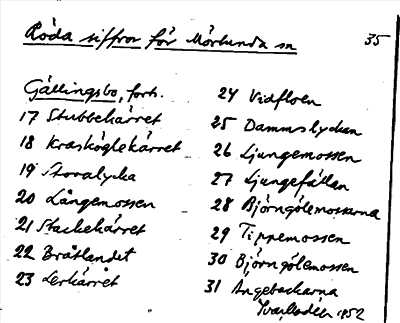 Röda siffror för Mörlunda sn
35
Gällingsbo, forts.
17 Stubbekärret
18 Krasköglekärret
19 Storalycka
20 Långemossen
21 Stackekärret
22 Bråtlandet
23 Lerkärret
24 Vidfloen
25 Dammslyckan
26 Ljungemossen
27 Ljungefällan
28 Björngölemossarna
29 Tippemossen
30 Björngölemossen
31 Angebackarna
1952